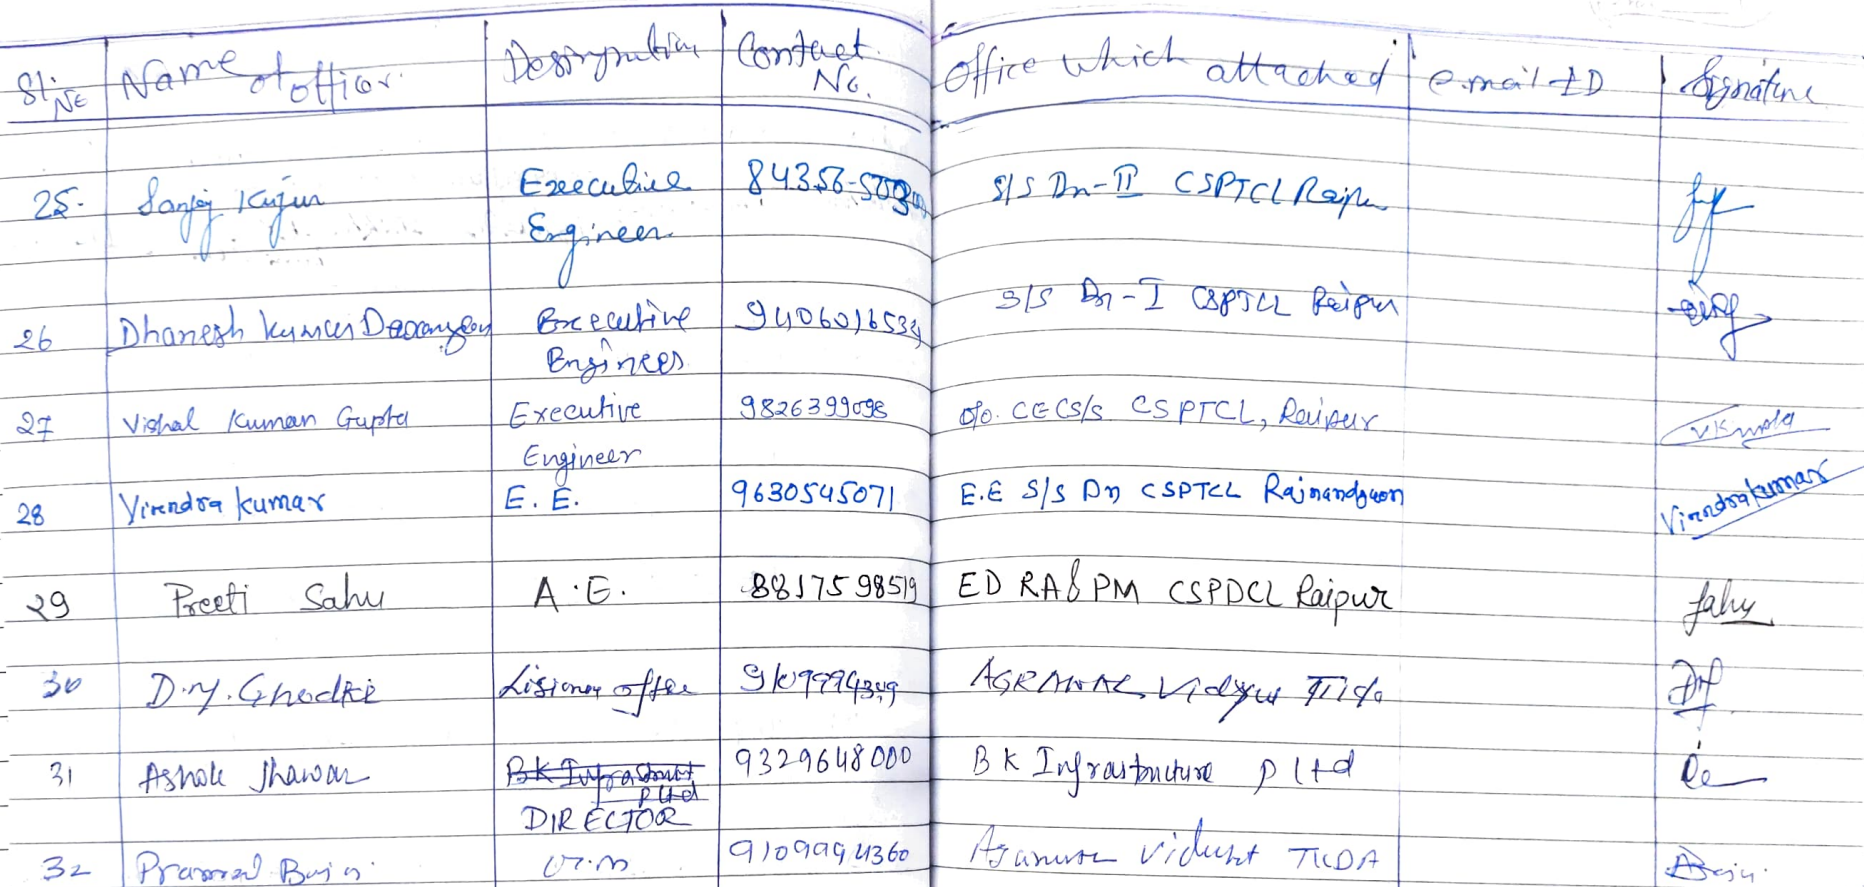 Sl. No Name of officer Designation Contact No. Office which attached e.mail ID Signature
25. Sanjay Kujur Executive Engineer 84356- S/S Dn-II CSPTCL Raipur
26 Dhanesh Kumar Dewangan Executive Engineer 9406016534 S/S Dn-I CSPTCL Raipur
27 Vishal Kumar Gupta Executive Engineer 9826399098 O/o. CE CS/s CSPTCL, Raipur
28 Virendra Kumar E.E. 9630545071 E.E S/S Dn CSPTCL Rajnandgaon Virendra Kumar
29 Preeti Sahu A.E. 8817598519 ED RA & PM CSPDCL Raipur Sahu
30 D.M. Ghodke AGRAWAL Vidyut
31 Ashok Jhawar BK Infrastruct P Ltd DIRECTOR 9329648000 B K Infrastructure P Ltd
32 9109994360 Vidyut TILDA